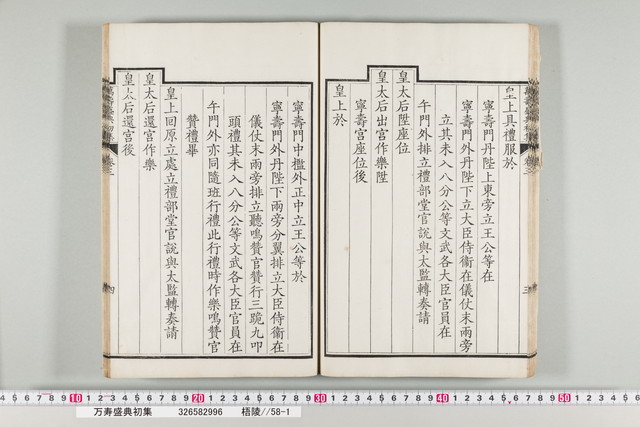 皇上具禮服於
寧壽門丹陛上東旁立王公等在
寧壽門外丹陛下立大臣侍衞在儀仗末兩旁
立其未入八分公等文武各大臣官員在
午門外排立禮部堂官說與太監轉奏請
皇太后陞座位
皇太后出宮作樂陞
寧壽宮座位後
皇上於
寧壽門中檻外正中立王公等於
寧壽門外丹陛下兩旁分翼排立大臣侍衞在
儀仗末兩旁排立聽鳴贊官贊行三跪九叩
頭禮其未入八分公等文武各大臣官員在
午門外亦同隨班行禮此行禮時作樂鳴贊官
贊禮畢
皇上回原立處立禮部堂官說與太監轉奏請
皇太后還宮作樂
皇太后還宮後
三
四
10 20 30 40 50
万寿盛典初集 326582996 梧陵//58-1